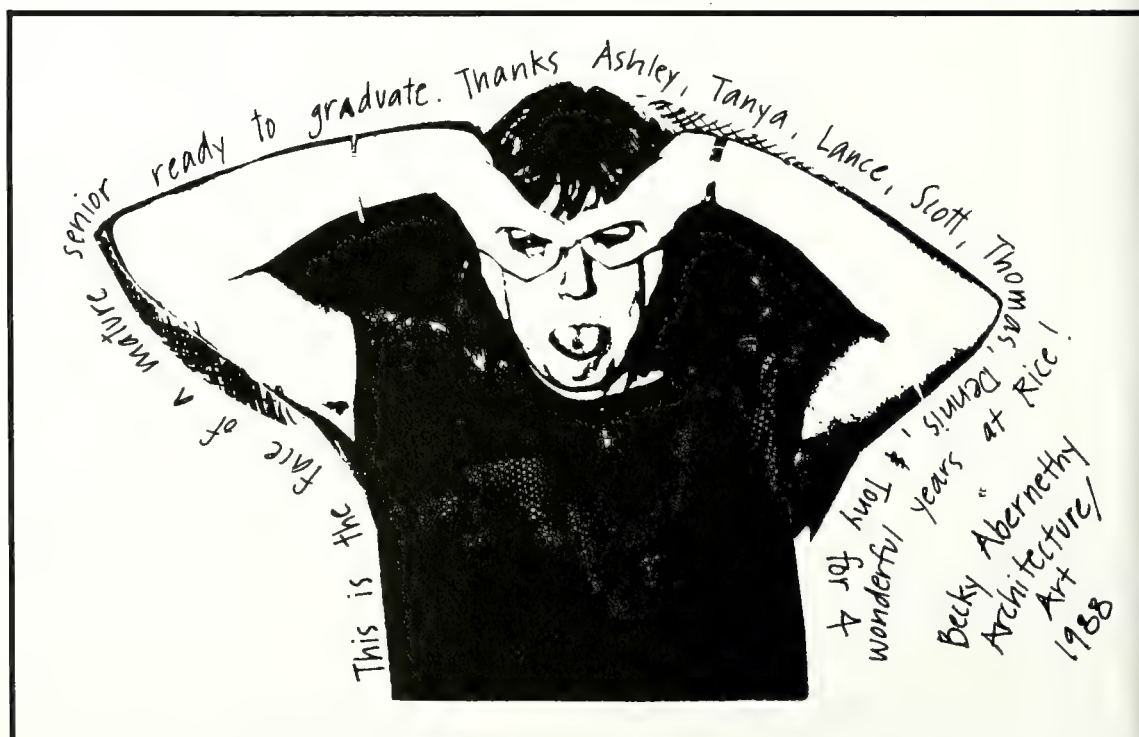 This is the face of A mature senior ready to graduate. Thanks Ashley, Tanya, Lance, Scott, Thomas, Dennis, & Tony for 4
wonderful years at Rice!
Becky Abernethy
Architecture/
Art
1988